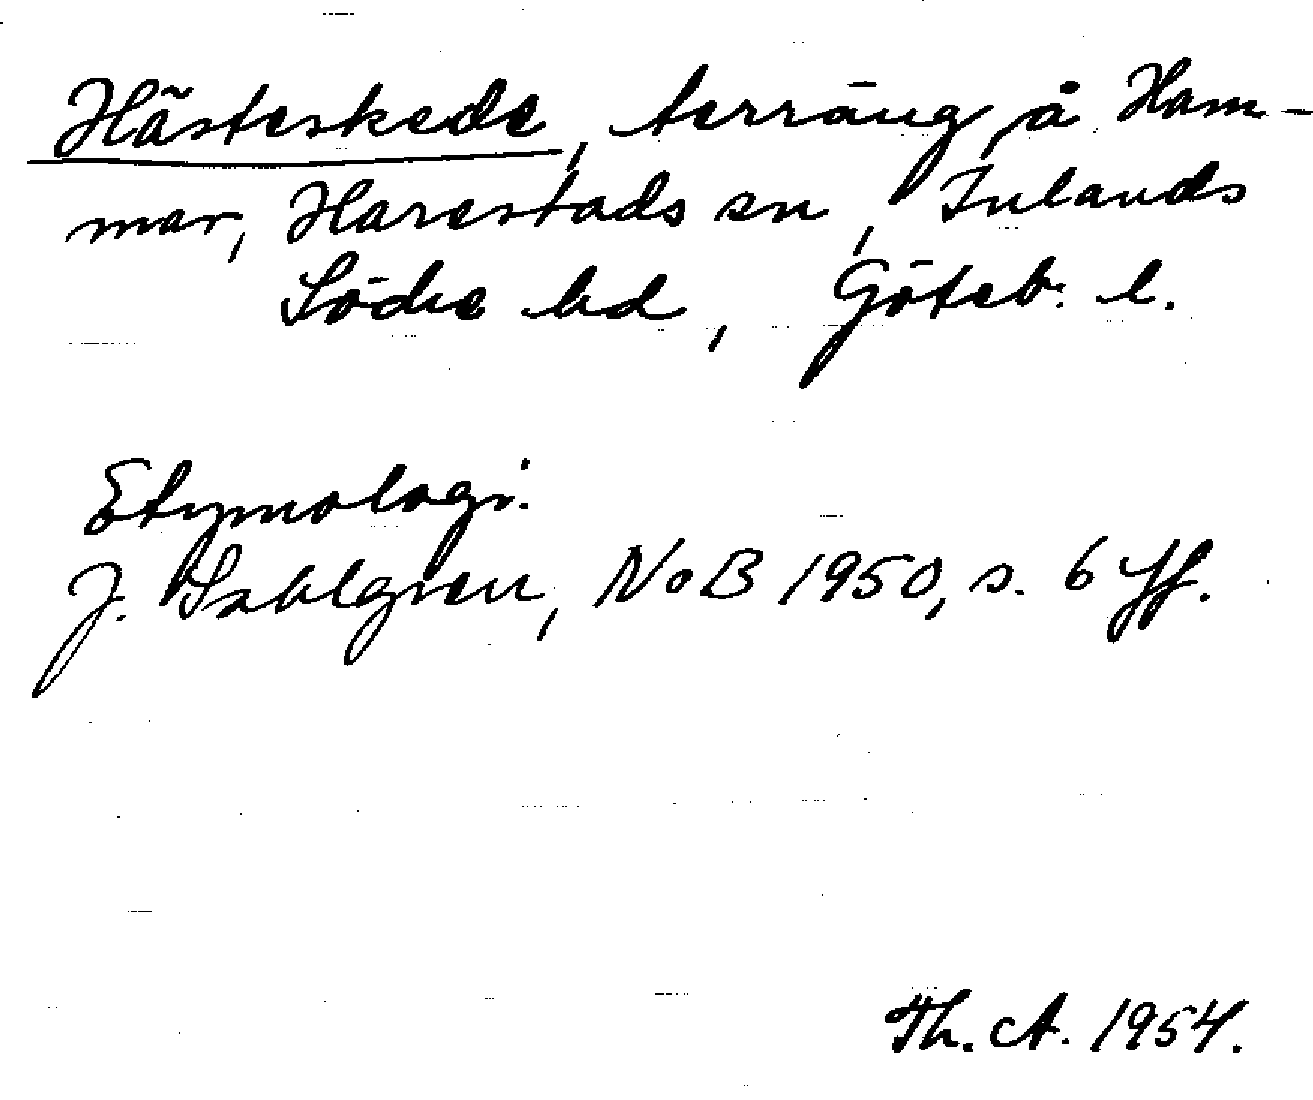 Hästeskede, terräng å Ham-
mar, Harestads sn, Inlands
Södre hd, Göteb. l.
Etymologi.
J. Sahlgren, NoB 1950, s. 6 ff.
Th. A. 1954.